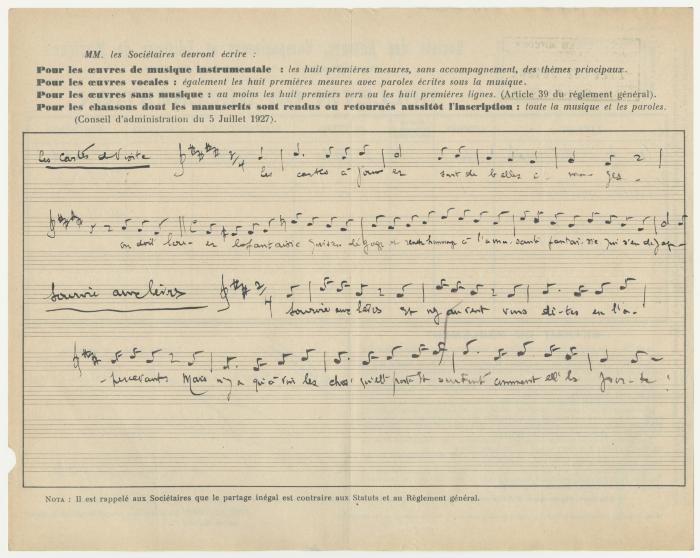 MM. les Sociétaires devront écrire :
Pour les œuvres de musique instrumentale : les huit premières mesures, sans accompagnement, des thèmes principaux.
Pour les œuvres vocales : également les huit premières mesures avec paroles écrites sous la musique.
Pour les œuvres sans musique : au moins les huit premiers vers ou les huit premières lignes. (Article 39 du règlement général).
Pour les chansons dont les manuscrits sont rendus ou retournés aussitôt l'inscription : toute la musique et les paroles.
(Conseil d'administration du 5 Juillet 1927).
les cartes de visite
2/4
les cartes à jouer sont de belles i- ma- ges -
on doit lou- er la fantaisie qui s'en dégage et rendre hommage à l'amu- sante fantai- sie qui s'en dégage-
Sourire aux lèvres
2/4
Sourire aux lèvres et vous di- tes en l'a-
-percevant Mais n'y a qu'à voir les comment ell' les
NOTA : Il est rappelé aux Sociétaires que le partage inégal est contraire aux Statuts et au Règlement général.